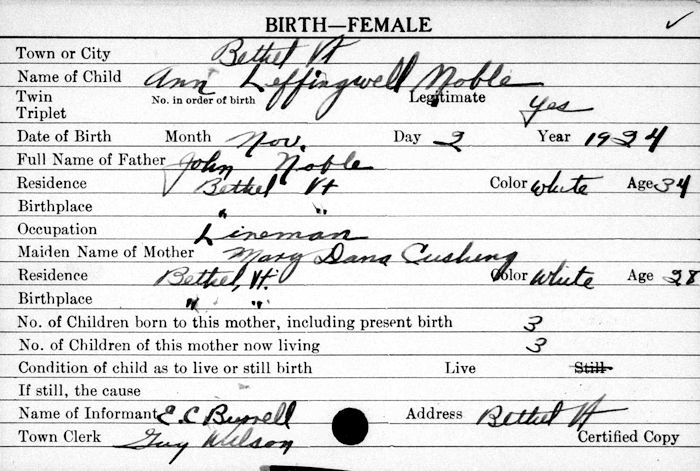 BIRTH—FEMALE
Town or City Bethel Vt
Name of Child Ann Leffingwell Noble
Twin No. in order of birth Legitimate yes
Triplet
Date of Birth Month Nov. Day 2 Year 1924
Full Name of Father John Noble
Residence Bethel Vt Color White Age 34
Birthplace " "
Occupation Lineman
Maiden Name of Mother Mary Dana Cushing
Residence Bethel, Vt. Color White Age 28
Birthplace " "
No. of Children born to this mother, including present birth 3
No. of Children of this mother now living 3
Condition of child as to live or still birth Live Still
If still, the cause
Name of Informant E. C. Burrell Address Bethel Vt
Town Clerk Guy Wilson Certified Copy